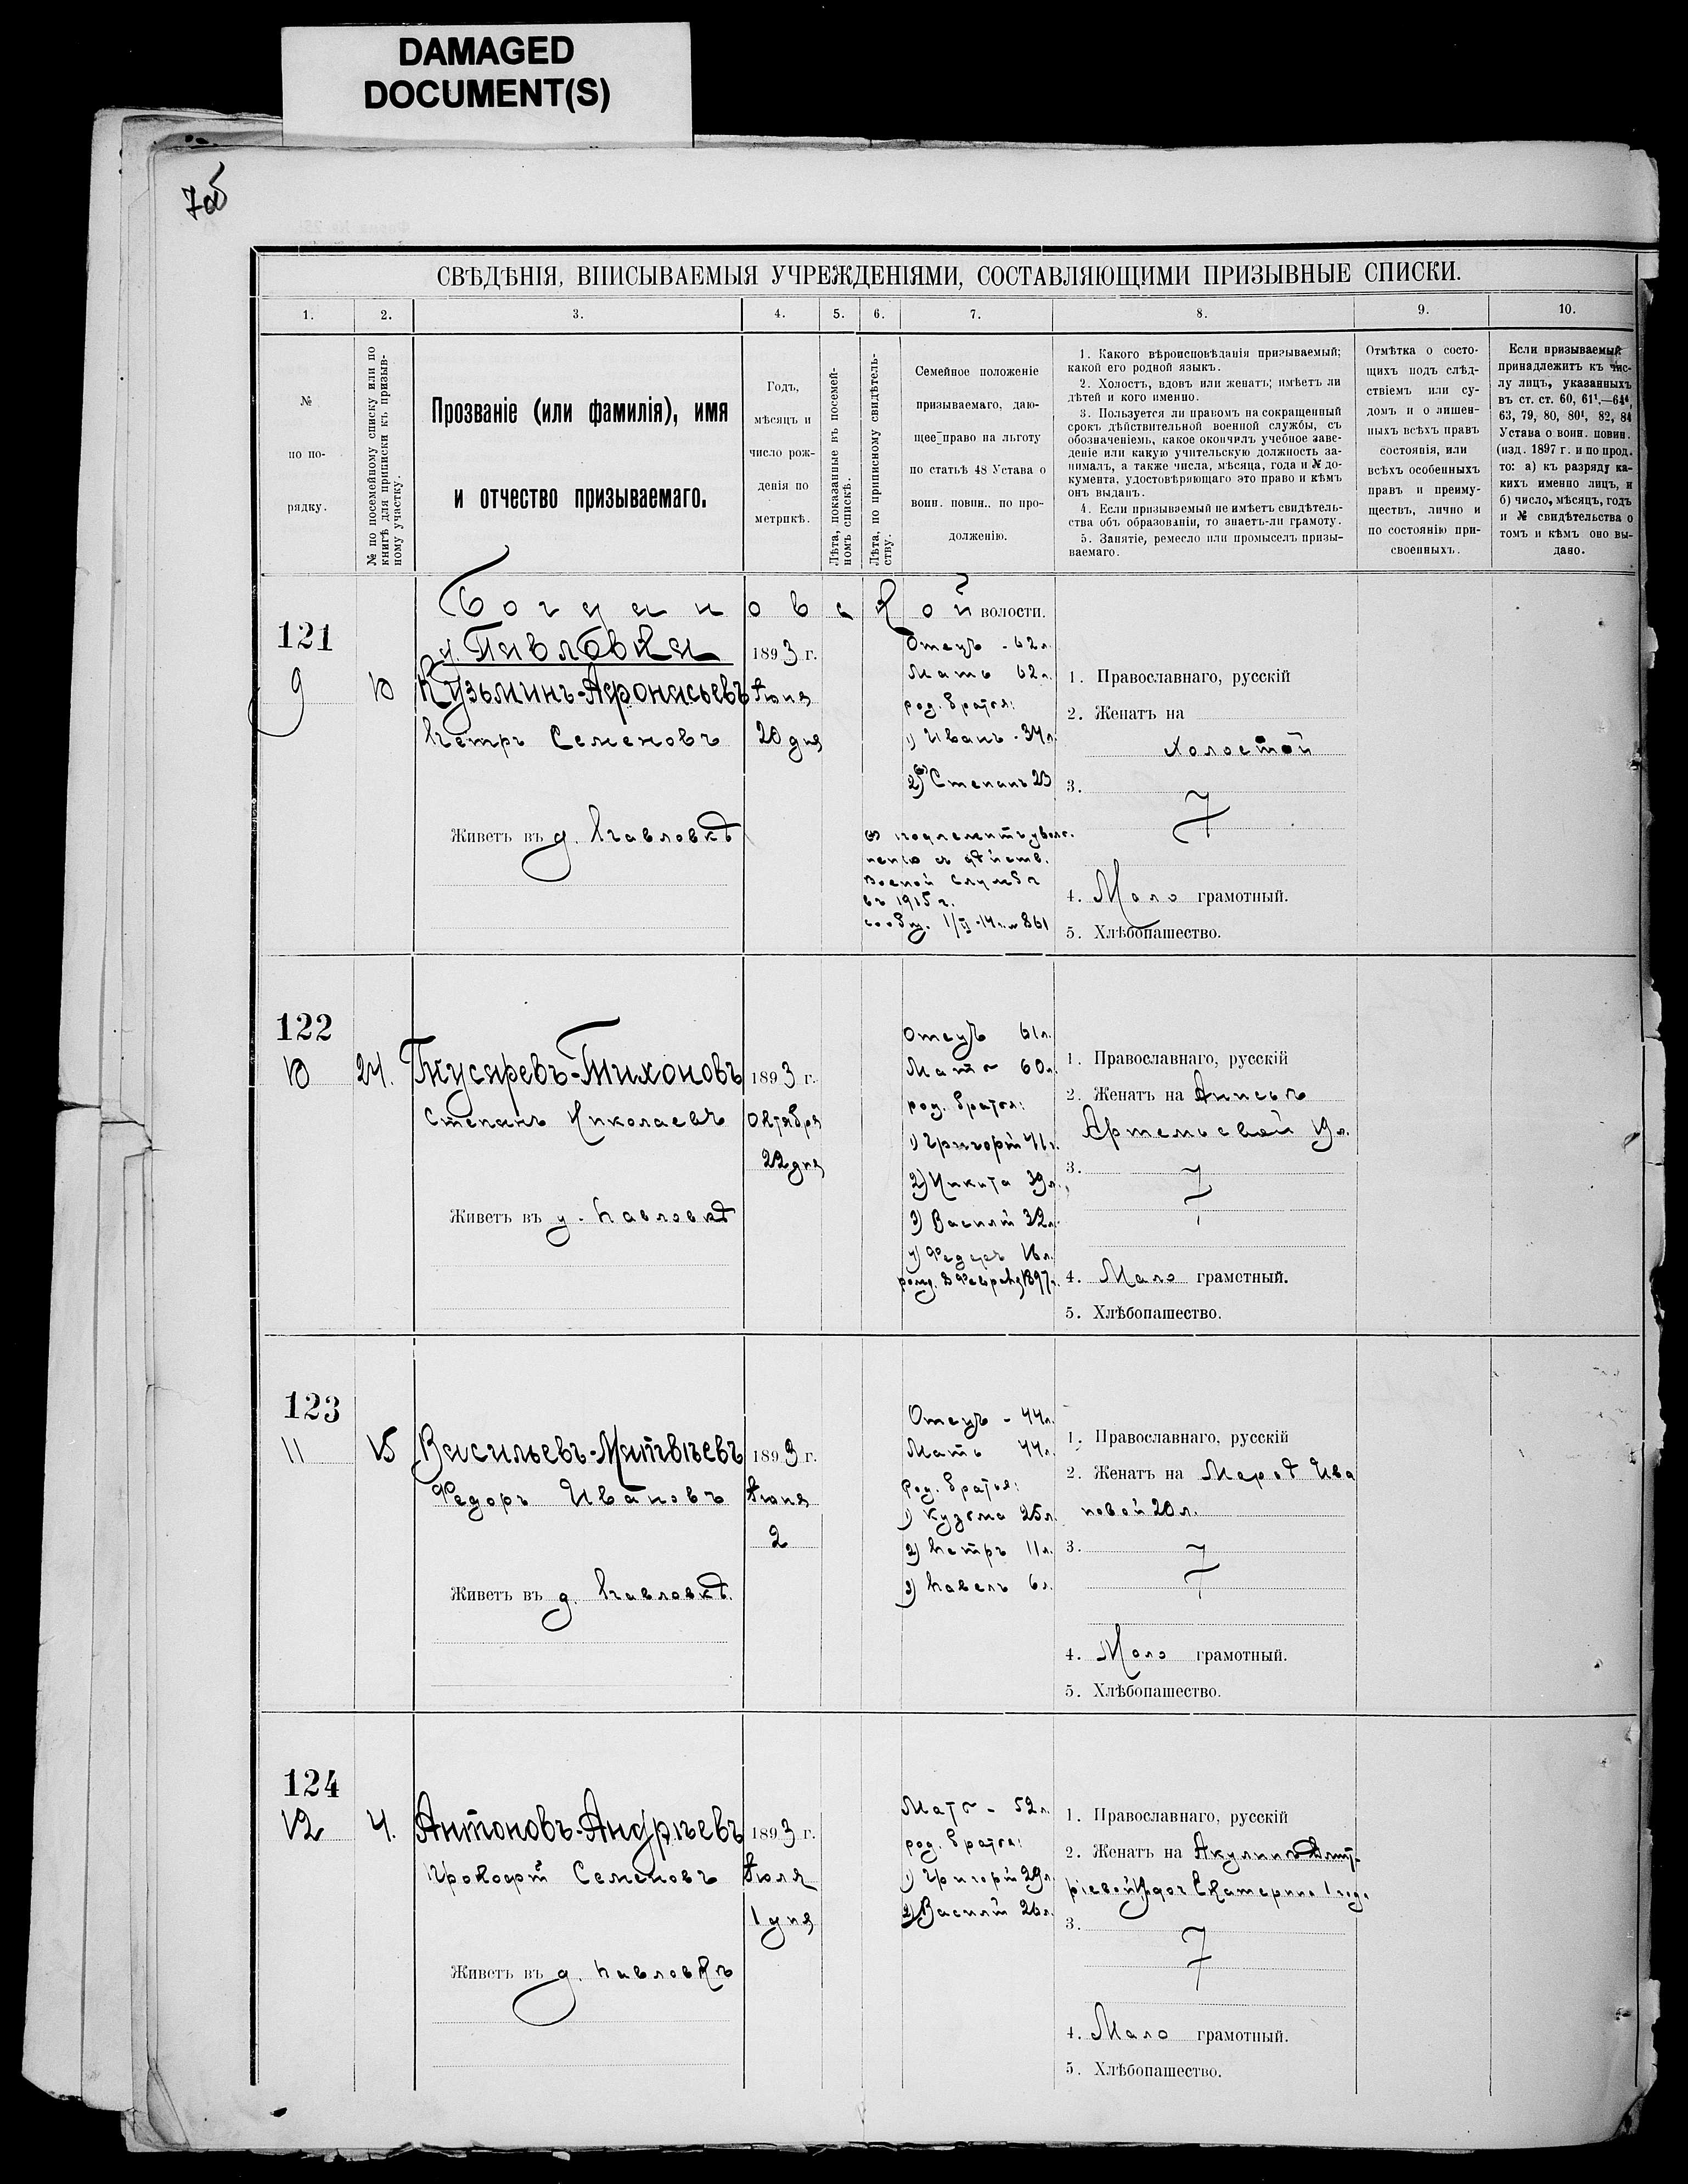 DAMAGED
DOCUMENT(S)
СВѢДѢНІЯ, ВПИСЫВАЕМЫЯ УЧРЕЖДЕНІЯМИ, СОСТАВЛЯЮЩИМИ ПРИЗЫВНЫЕ СПИСКИ.
1. 2. 3. 4. 5. 6. 7. 8. 9. 10.
№
по по-
рядку.
№ по посемейному списку или по
книгѣ для приписки къ призыв-
ному участку.
Прозваніе (или фамилія), имя
и отчество призываемаго.
Годъ,
мѣсяцъ и
число рож-
денія по
метрикѣ.
Лѣта, показанные въ посемей-
номъ спискѣ.
Лѣта, по приписному свидѣтель-
ству.
Семейное положеніе
призываемаго, даю-
щее право на льготу
по статьѣ 48 Устава о
воин. повин., по про-
долженію.
1. Какого вѣроисповѣданія призываемый;
какой его родной языкъ.
2. Холостъ, вдовъ или женатъ; имѣетъ ли
дѣтей и кого именно.
3. Пользуется ли правомъ на сокращенный
срокъ дѣйствительной военной службы, съ
обозначеніемъ, какое окончилъ учебное заве-
деніе или какую учительскую должность за-
нималъ, а также числа, мѣсяца, года и № до-
кумента, удостовѣряющаго это право и кѣмъ
онъ выданъ.
4. Если призываемый не имѣетъ свидѣтель-
ства объ образованіи, то знаетъ-ли грамоту.
5. Занятіе, ремесло или промыселъ призы-
ваемаго.
Отмѣтка о состо-
щихъ подъ слѣд-
ствіемъ или су-
домъ и о лишен-
ныхъ всѣхъ правъ
состоянія, или
всѣхъ особенныхъ
правъ и преиму-
ществъ, лично и
по состоянію при-
своенныхъ.
Если призываемый
принадлежитъ къ чис-
лу лицъ, указанныхъ
въ ст. ст. 60, 61¹,—64⁴,
63, 79, 80, 80¹, 82, 84
Устава о воин. повин.
(изд. 1897 г. и по прод.
то: а) къ разряду ка-
кихъ именно лицъ, и
б) число, мѣсяцъ, годъ
и № свидѣтельства о
томъ и кѣмъ оно вы-
дано.
Богдановской волости.
д. Павловка
121
9
10
Кузьминъ-Афонасьевъ
Петръ Семеновъ
Живетъ въ д. Павловкѣ
1893 г.
Іюня
20 дня
Отецъ - 62 л.
Мать 62 л.
род. братья:
1) Иванъ - 34 л.
2) Степанъ 23
въ 1915 г.
1. Православнаго, русскій
2. Женатъ на
Холостой
3.
4. Мало грамотный.
5. Хлѣбопашество.
122
10
24.
Гнусаревъ-Тихоновъ
Степанъ Николаевъ
Живетъ въ д. Павловкѣ
1893 г.
Октября
22 дня
Отецъ 61 л.
Мать 60 л.
род. братья:
1) Григорій 41 г.
2) Никита 39 л.
3) Василій 32 л.
4) Федоръ 16 л.
рожд. 8 Февраля 1897 г.
1. Православнаго, русскій
2. Женатъ на Анисьѣ
Артемьевой 19 л.
3.
4. Мало грамотный.
5. Хлѣбопашество.
123
11
15
Васильевъ-Матвѣевъ
Федоръ Ивановъ
Живетъ въ д. Павловкѣ.
1893 г.
Іюня
2
Отецъ - 44 л.
Мать 44 л.
род. братья:
1) Кузьма 25 л.
2) Петръ 11 л.
3) Павелъ 6 л.
1. Православнаго, русскій
2. Женатъ на Марѳѣ Ива
новой 20 л.
3.
4. Мало грамотный.
5. Хлѣбопашество.
124
12
4.
Антоновъ-Андрѣевъ
Прокофій Семеновъ
Живетъ въ д. Павловкѣ
1893 г.
Іюля
1 дня
Мать - 52 л.
род. братья:
1) Григорій 29 л.
2) Василій 26 л.
1. Православнаго, русскій
2. Женатъ на Акулинѣ Дмит-
ріевой, дочь Екатерина 1 года
3.
4. Мало грамотный.
5. Хлѣбопашество.